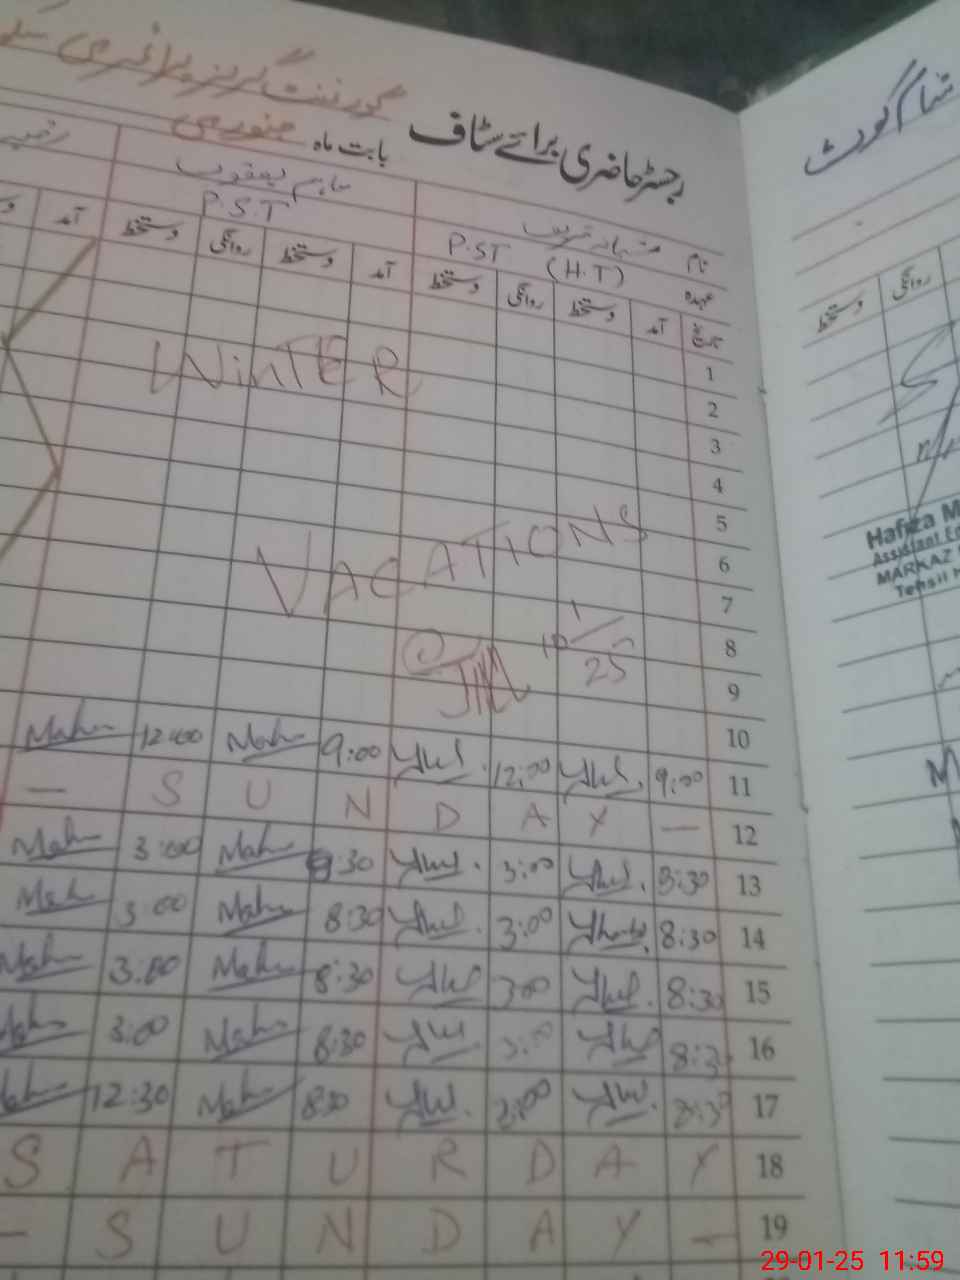 شام کوٹ
گورنمنٹ گرلز پرائمری
رجسٹر حاضری برائے سٹاف
بابت ماہ جنوری
نام
ماہم یعقوب
عہدہ P.ST (H.T) P.S.T
تاریخ آمد دستخط روانگی دستخط آمد دستخط روانگی دستخط آمد
روانگی دستخط
1
WiNTER
2
3
4
5
VACATIONS
6
7
8
10/1/25
9
10
11 9:00 12:00 9:00 Mah 12:00 Mah
12 — S U N D A Y —
13 8:30 3:00 :30 Mah 3:00 Mah
14 8:30 3:00 8:30 Mah 3:00 Mah
15 8:30 3:00 8:30 Mah 3:00 Mah
16 8:30 3:00 8:30 Mah 3:00 Mah
17 8:30 3:00 8:30 Mah 12:30 Mah
18 S A T U R D A Y
19 — S U N D A Y —
Hafiza M
Assistant Ed
MARKAZ
Tehsil
29-01-25 11:59